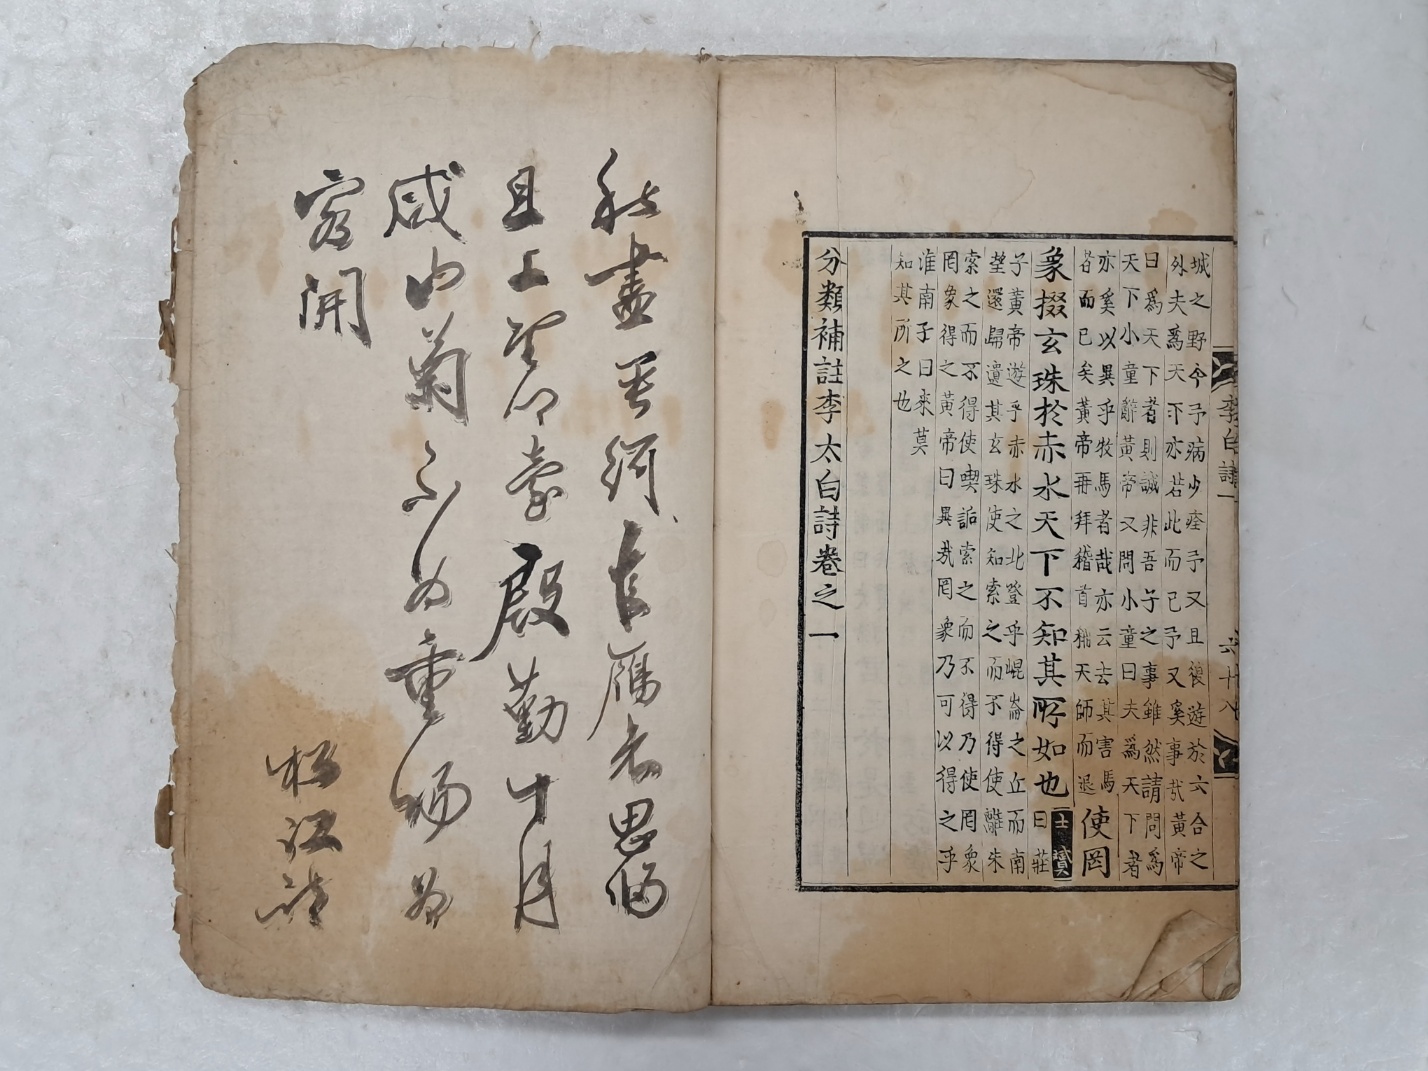 李白詩一
六十八
城之野今予病少痊予又且復遊於六合之
外夫爲天下亦若此而已予又奚事哉黃帝
曰爲天下者則誠非吾子之事雖然請問爲
天下小童辭黃帝又問小童曰夫爲天下者
亦奚以異乎牧馬者哉亦云去其害馬
者而已矣黃帝再拜稽首稱天師而退
使罔
象掇玄珠於赤水天下不知其所如也
士贇
曰莊
子黃帝遊乎赤水之北登乎崐崙之丘而南
望還歸遺其玄珠使知索之而不得使離朱
索之而不得使喫詬索之而不得乃使罔象
罔象得之黃帝曰異哉罔象乃可以得之乎
淮南子曰來莫
知其所之也
分類補註李太白詩卷之一
秋盡 雁 思
且上 殷勤十月
咸 菊 重陽
開
松江